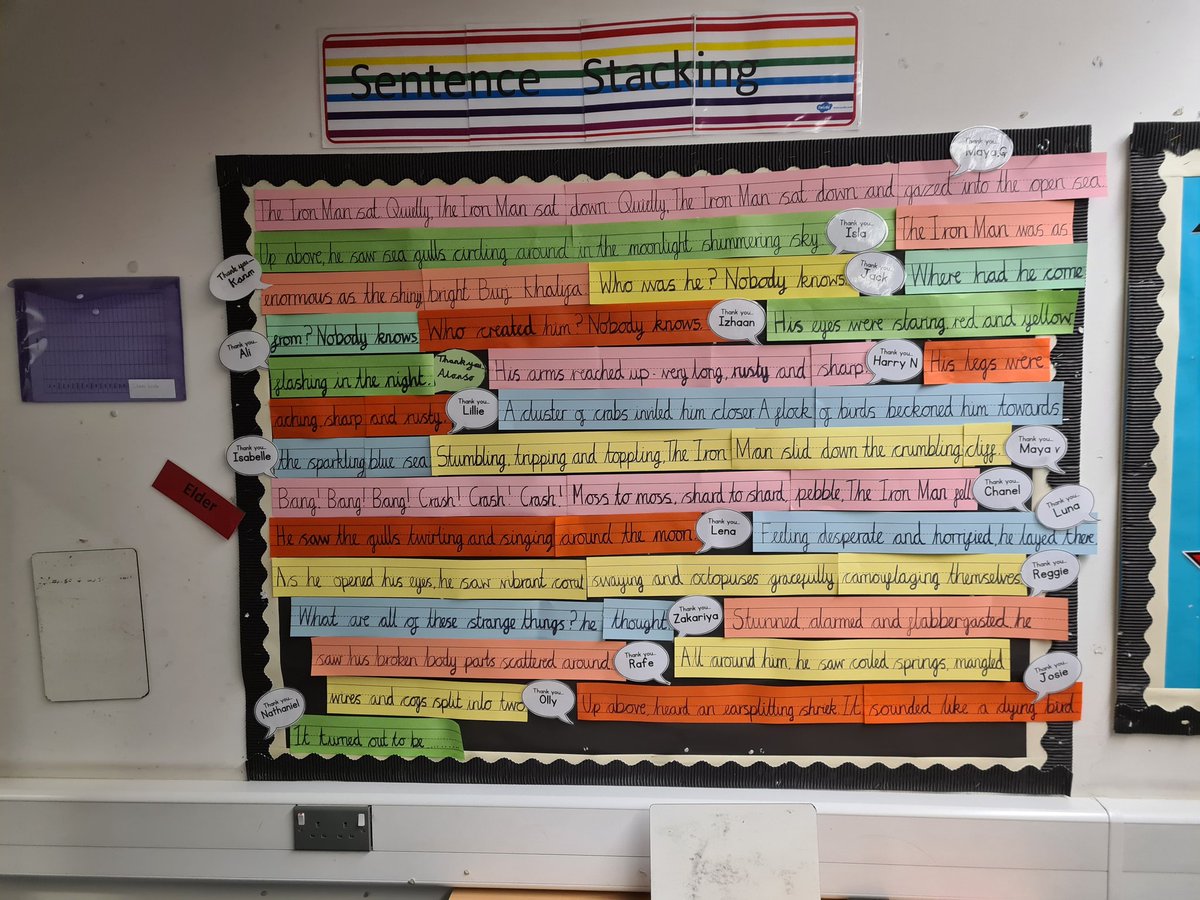 Sentence Stacking
Thank you... Maya.G
The Iron Man sat. Quietly, The Iron Man sat down. Quietly, The Iron Man sat down and gazed into the open sea
Up above, he saw sea gulls circling around in the moonlight shimmering sky. Thank you... Isla The Iron Man was as
Thank you... Karim enormous as the shiny bright Burj Khalifa. Who was he? Nobody knows. Thank you... Jack Where had he come
from? Nobody knows. Who created him? Nobody knows. Thank you... Izhaan His eyes were staring, red and yellow
Thank you... Ali flashing in the night. Thank you... Alonso His arms reached up - very long, rusty and sharp Thank you... Harry N His legs were
aching, sharp and rusty. Thank you... Lillie A cluster of crabs invited him closer. A flock of birds beckoned him towards
Thank you... Isabelle the sparkling blue sea. Stumbling, tripping and toppling, The Iron Man slid down the crumbling cliff. Thank you... Maya v
Bang! Bang! Bang! Crash! Crash! Crash! Moss to moss, shard to shard, pebble, The Iron Man fell Thank you... Chanel
He saw the gulls twirling and singing around the moon. Thank you... Lena Feeling desperate and horrified, he layed there. Thank you... Luna
As he opened his eyes, he saw vibrant coral swaying and octopuses gracefully camouflaging themselves Thank you... Reggie
What are all of these strange things? he thought. Thank you... Zakariya Stunned, alarmed and flabbergasted, he
saw his broken body parts scattered around. Thank you... Rafe All around him, he saw coiled springs, mangled
wires and cogs split into two Thank you... Olly Up above, heard an earsplitting shriek. It sounded like a dying bird. Thank you... Josie
Thank you... Nathaniel It turned out to be ......
Elder